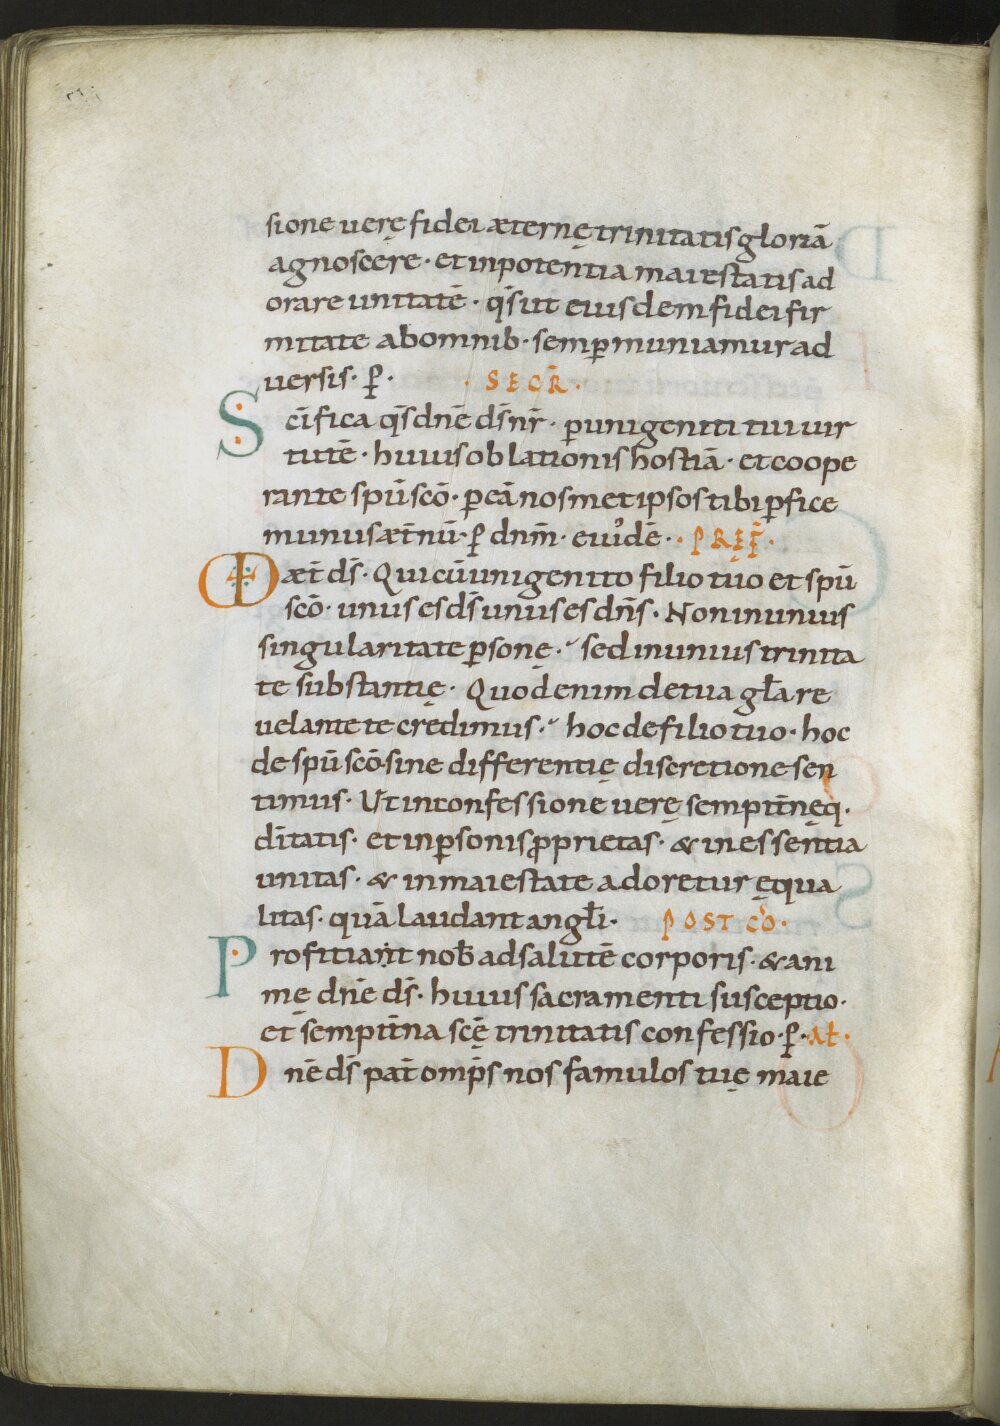 sione uerę fidei æternę trinitatis gloriā
agnoscere · et in potentia maiestatis ad
orare unitatē · q̄s ut eiusdem fidei fir
mitate ab omnib· semp̄ muniamur ad
uersis · p̄ · · SECR̄ ·
Sc̄ifica q̄s dn̄e ds̄ nr̄ · p̄ unigeniti tui uir
tutē · huius oblationis hostiā · et coope
rante spū scō · p̄ eā nosmet ipsos tibi p̄fice
munus æt̄nū · p̄ dn̄m · eiu'dē · · PRĘF̄ ·
æt̄ ds̄ · Qui cū unigenito filio tuo et spū
scō · unus es ds̄ unus es dn̄s · Non in unius
singularitate p̄sonę · sed in unius trinita
te substantię · Quod enim de tua gl̄a re
uelante te credimus · hoc de filio tuo · hoc
de spū scō sine differentię discretione sen
timus · Ut in confessione uerę sempit̄nęq·
dītatis · et in p̄sonis p̄prietas · & in essentia
unitas · & in maiestate adoretur ęqua
litas · quā laudant angl̄i · POST CŌ ·
Proficiant nob̄ ad salutē corporis · & ani
mę dn̄e ds̄ · huius sacramenti susceptio ·
et sempit̄na scę̄ trinitatis confessio · p̄ · Al̄ ·
Dn̄e ds̄ pat̄ omp̄s nos famulos tuę maie